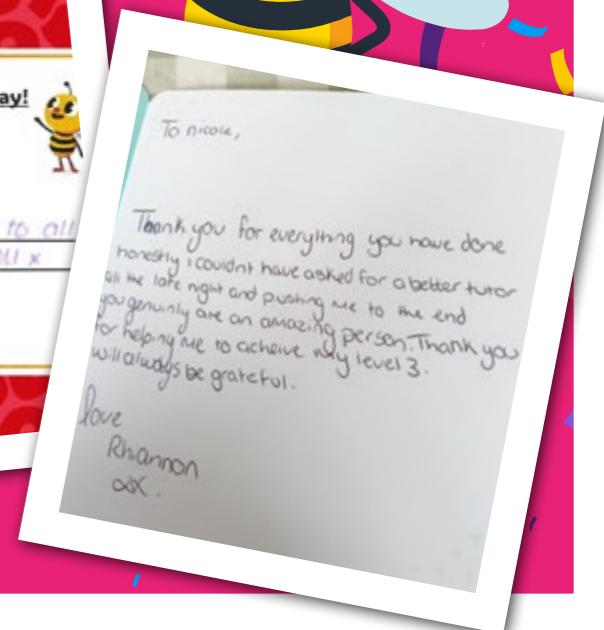 ay!
to all
all x
To nicole,
Thank you for everything you have done
honestly i couldnt have asked for a better tutor
all the late night and pushing me to the end
you genuinly are an amazing person. Thank you
for helping me to acheive my level 3.
will always be grateful.
love
Rhannon
xx.